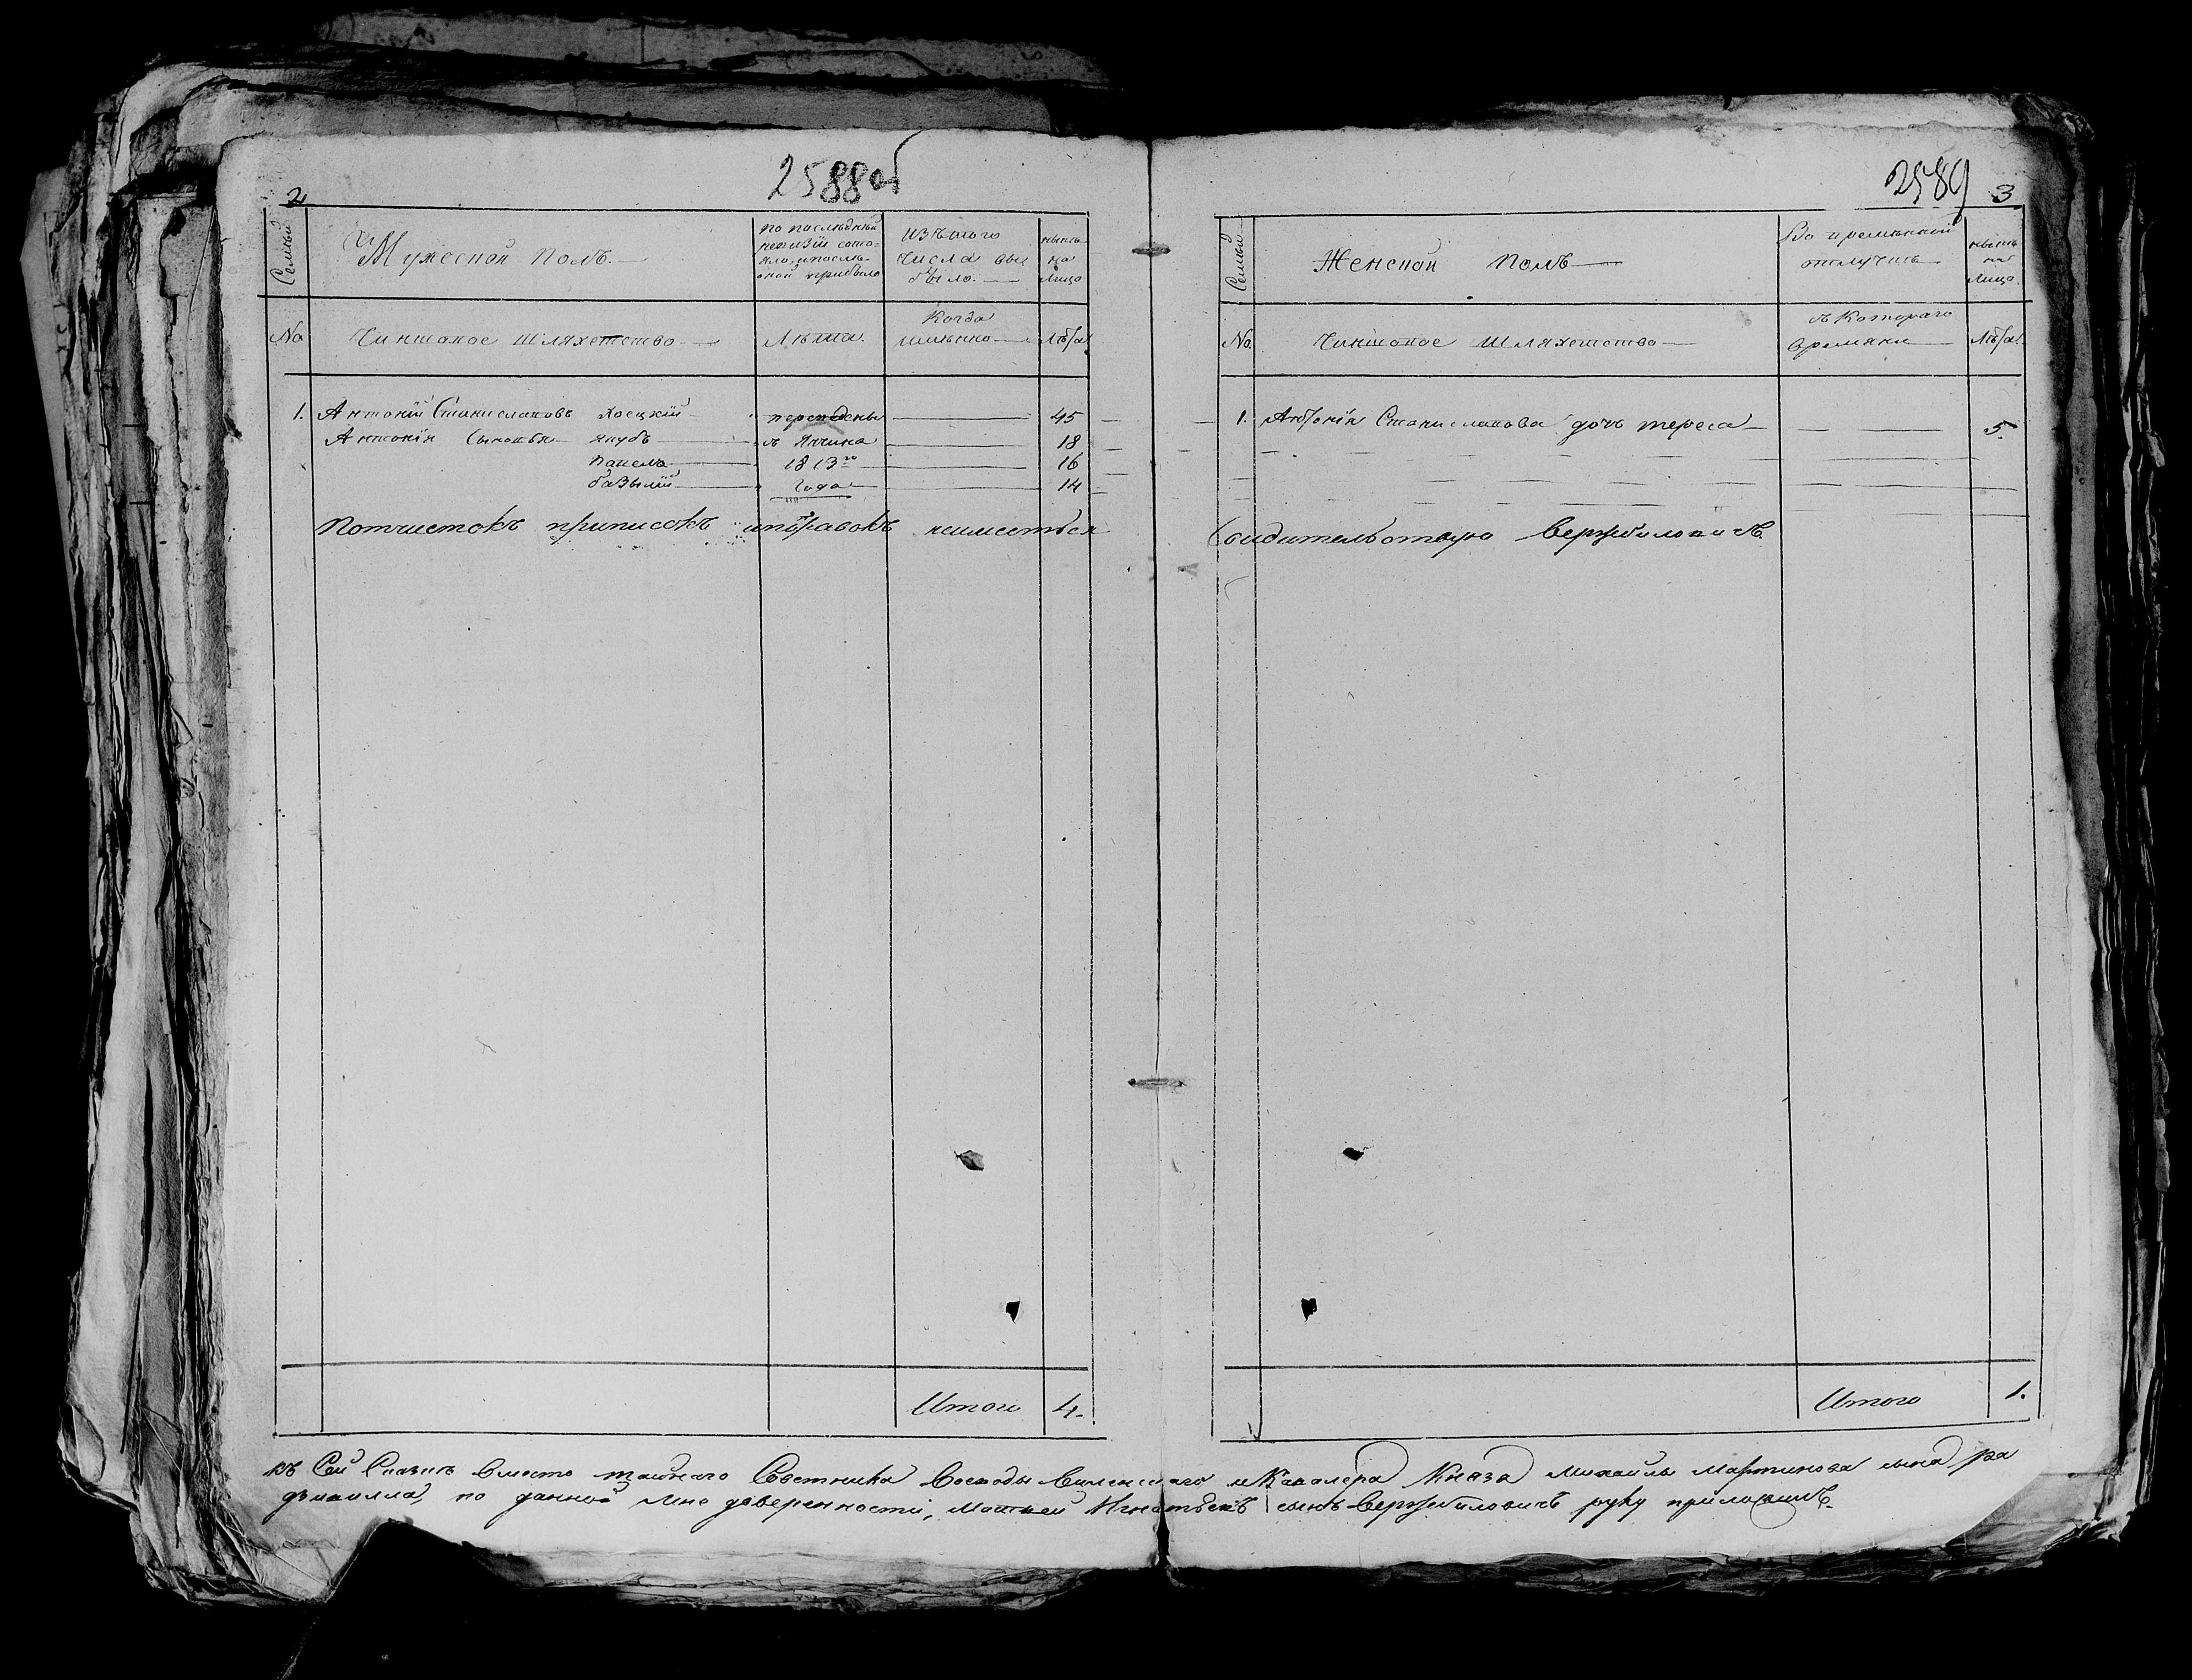 2588 об
2
Семьи
Мужеской полъ
по последней
ревизiи состо-
яло и после
оной прибыло
изъ того
числа вы
было
ныне
на
лицо
No
Чиншовое шляхетство
Лета
Когда
именно
Лѣта
1. Антонiй Станиславовъ 
переведены
45
Антонiя Сыновья Якубъ
съ
18
Павелъ
1813го
16
базылiй
года
14
Потчистокъ приписокъ ипоправокъ неимееться
Итого
4.
2589
3
Семьи
Женской полъ
Во временной
отлучке
ныне
на
Лицо
No
Чиншовое шляхетство
съ Которого
времяни
Лѣта
1. Антонiя Станиславова дочь тереса
5.
Свидительствую Вержбиловичъ
Итого
1.
къ Сей Сказке вместо тайнаго Советника Воеводы Виленскаго и Кавалера Князя Михаила Мартинова сына ра
дзивилла, по данной мне доверенности, Матвей Игнатьевъ сынъ Вержбиловичъ руку приложилъ